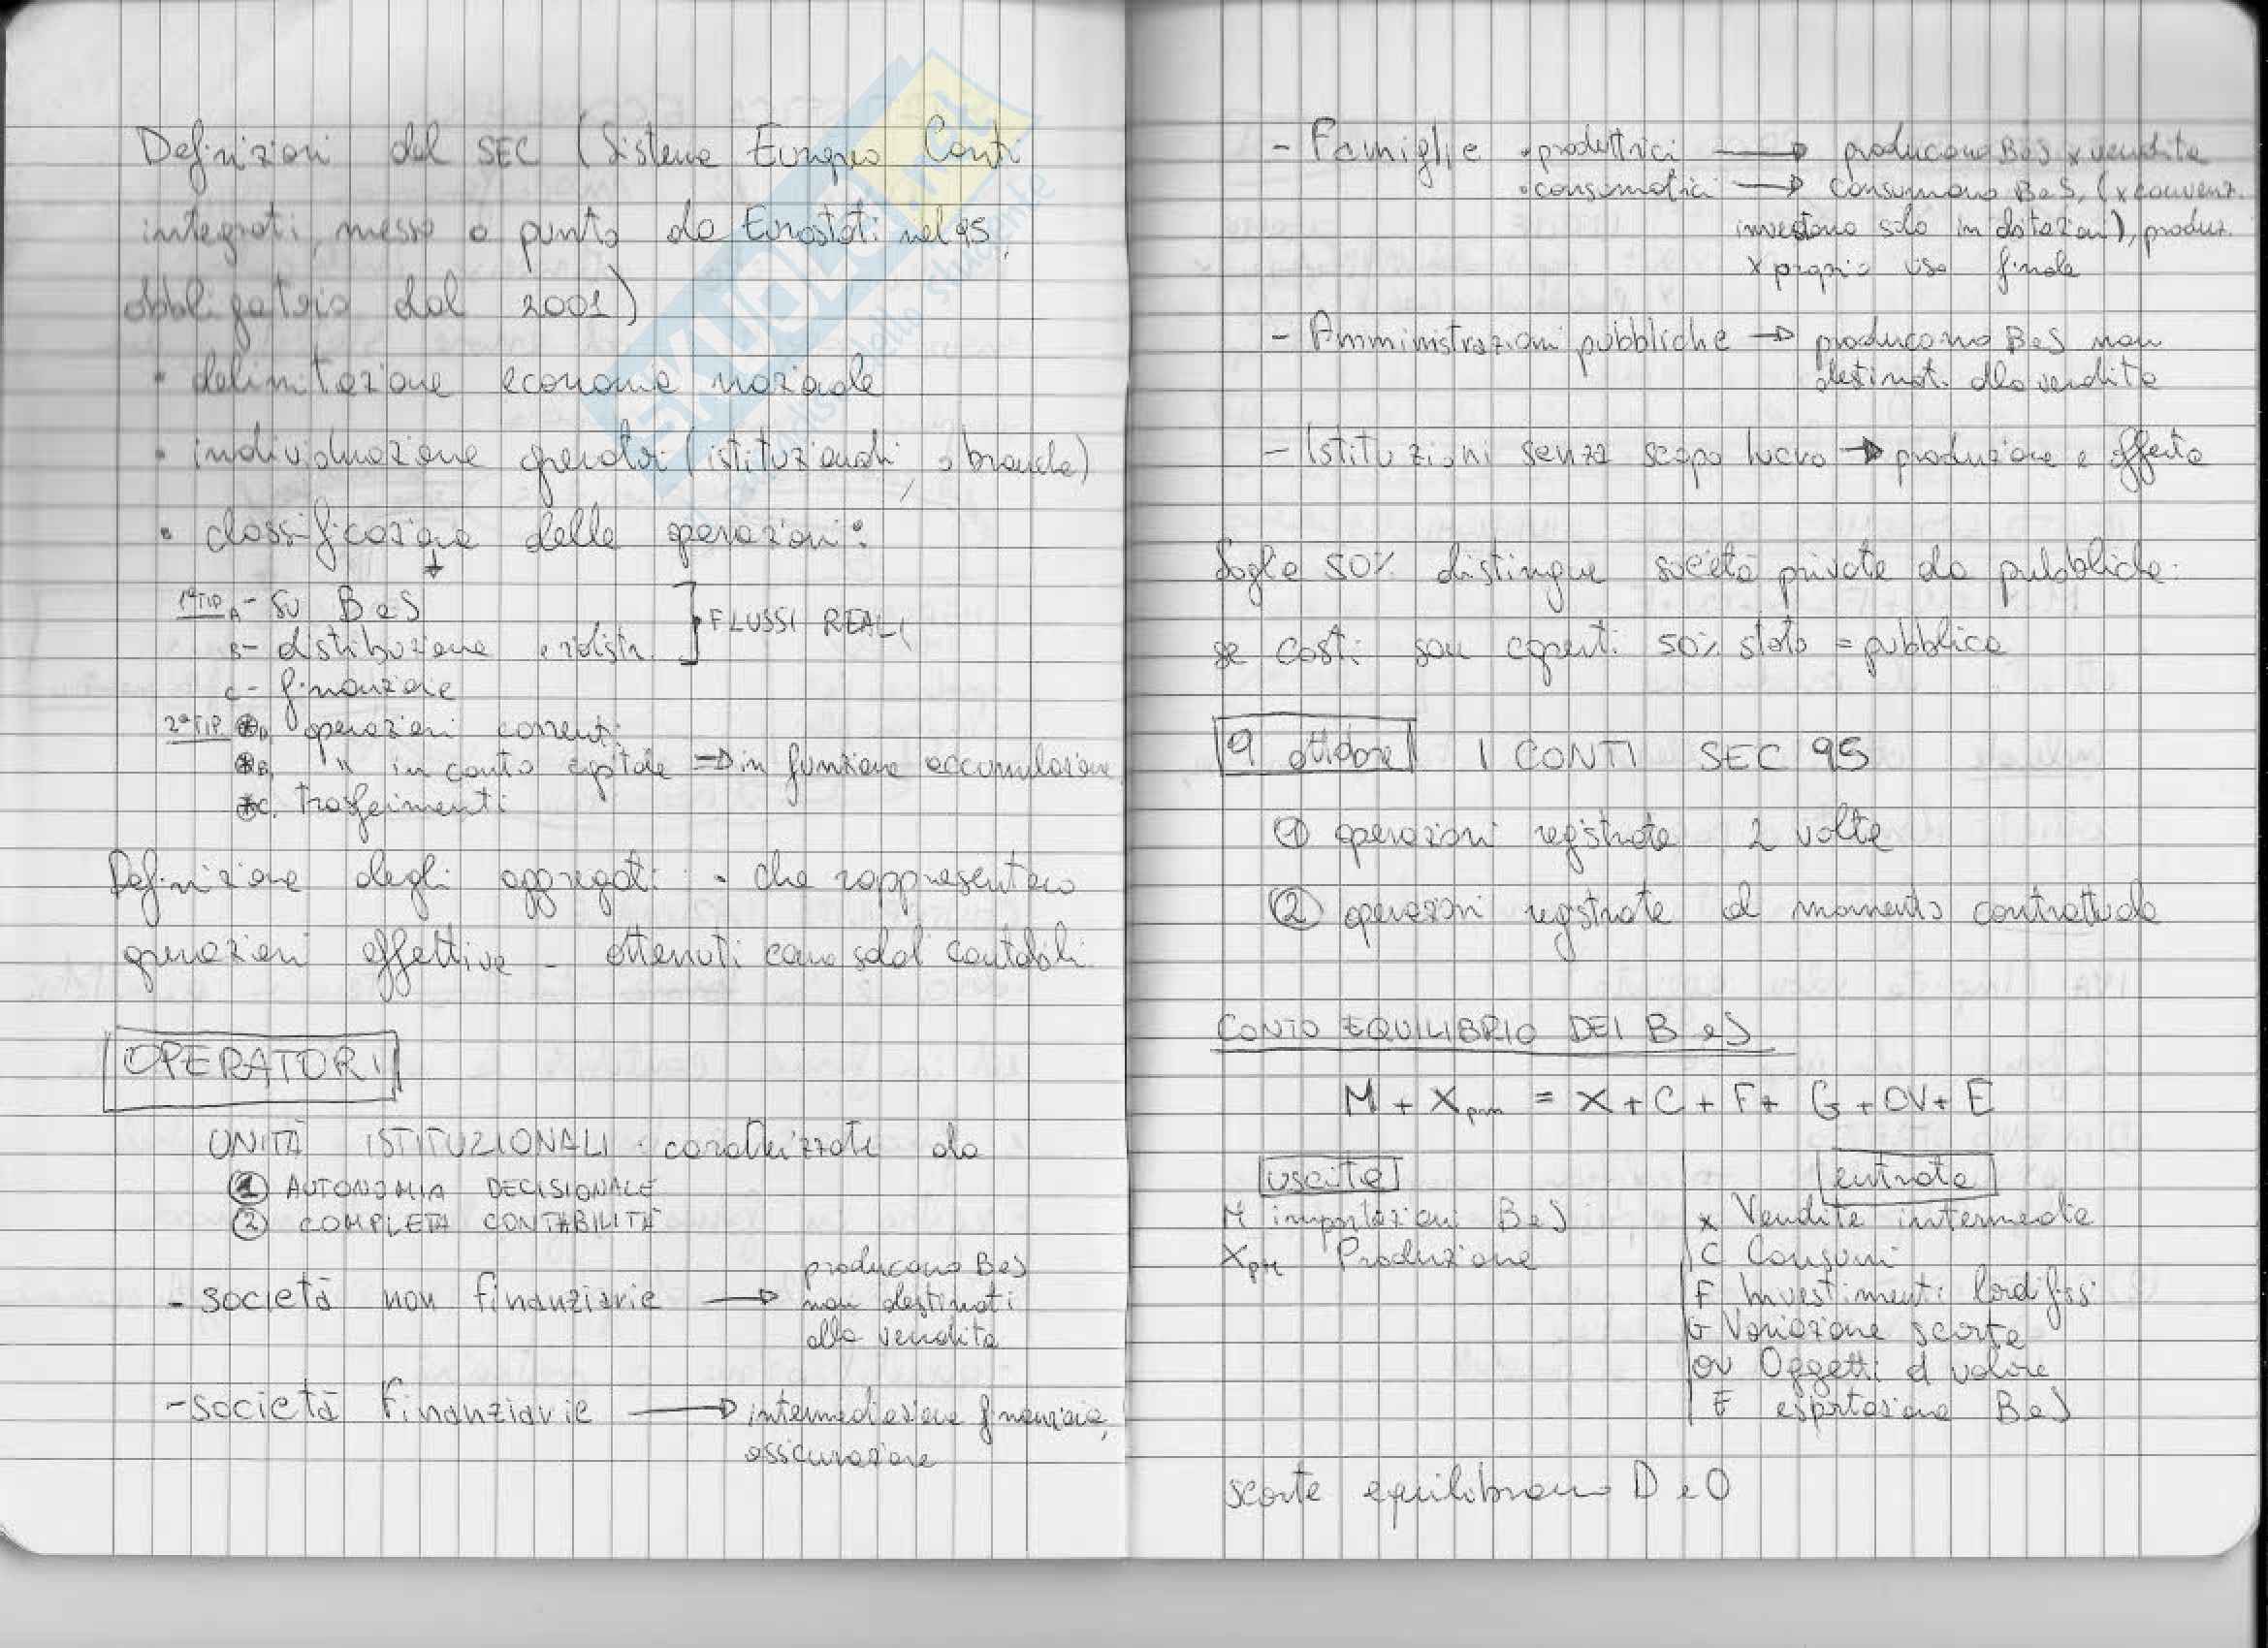 Definizioni del SEC (Sistema Europeo Conti
integrati, messo a punto da Eurostat nel 95,
obbligatorio dal 2001)
• delimitazione economia nazionale
• individuazione operatori (istituzionali, o branche)
• classificazione delle operazioni:
1ª TIP A- SU BeS
B- distribuzione e ridistr. ] FLUSSI REALI
C- finanziarie
2ª TIP ⊛A. operazioni correnti
⊛B. " in conto capitale → in funzione accumulazione
⊛C. trasferimenti
Definizione degli aggregati: - che rappresentano
operazioni effettive - ottenuti come saldi contabili.
OPERATORI
UNITÀ ISTITUZIONALI: caratterizzate da
① AUTONOMIA DECISIONALE
② COMPLETA CONTABILITÀ
- società non finanziarie → producono BeS
non destinati
alla vendita
- società finanziarie → intermediazione finanziaria,
assicurazione
- Famiglie • produttrici → producono BeS x vendita
• consumatrici → consumano BeS, (x convenz.
investono solo in abitazioni), produz.
x proprio uso finale
- Amministrazioni pubbliche → producono BeS non
destinati alla vendita
- Istituzioni senza scopo lucro → produzione e offerta
Soglia 50% distingue società private da pubbliche:
se costi son coperti 50% stato = pubblica
9 ottobre I CONTI SEC 95
① operazioni registrate 2 volte
② operazioni registrate al momento contrattuale
CONTO EQUILIBRIO DEI B e S
M + Xpm = X + C + F + G + OV + E
uscite entrate
M importazioni BeS x Vendite intermedie
Xpm Produzione C Consumi
F Investimenti lordi fissi
G Variazione scorte
OV Oggetti d valore
E esportazione BeS
scorte equilibrano D e O
SKUOLA.net